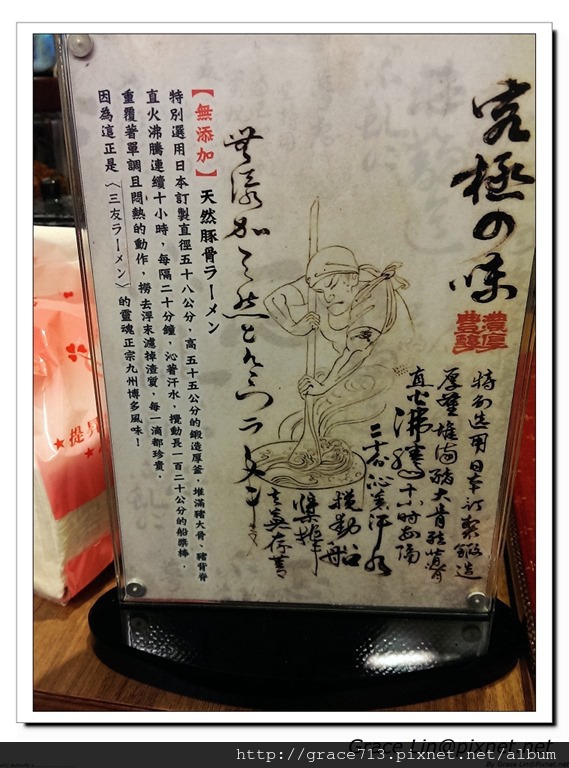 究極の味
濃厚
豊醇
特別選用日本訂製鍛造
厚壁堆滿豬大骨豬背脊
直火沸騰十小時每隔
二十分沁著汗水
攪動船
槳棒
去蕪存菁
無添加天然とんこつラーメン
【無添加】天然豚骨ラーメン
特別選用日本訂製直徑五十八公分，高五十五公分的鍛造厚釜，堆滿豬大骨、豬背脊
直火沸騰連續十小時，每隔二十分鐘，沁著汗水，攪動長一百二十公分的船槳棒，
重覆著單調且悶熱的動作，撈去浮末濾掉渣質，每一滴都珍貴，
因為這正是〈三友ラーメン〉的靈魂正宗九州博多風味！
★提昇
Grace Lin@pixnet.net
http://grace713.pixnet.net/album